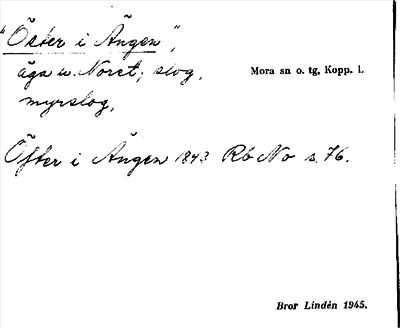 "Öster i Ängen",
äga u. Noret; slog,
Mora sn o. tg, Kopp. l.
myrslog,
Öfter i Ängen 1843 Rb No s. 76.
Bror Lindén 1945.